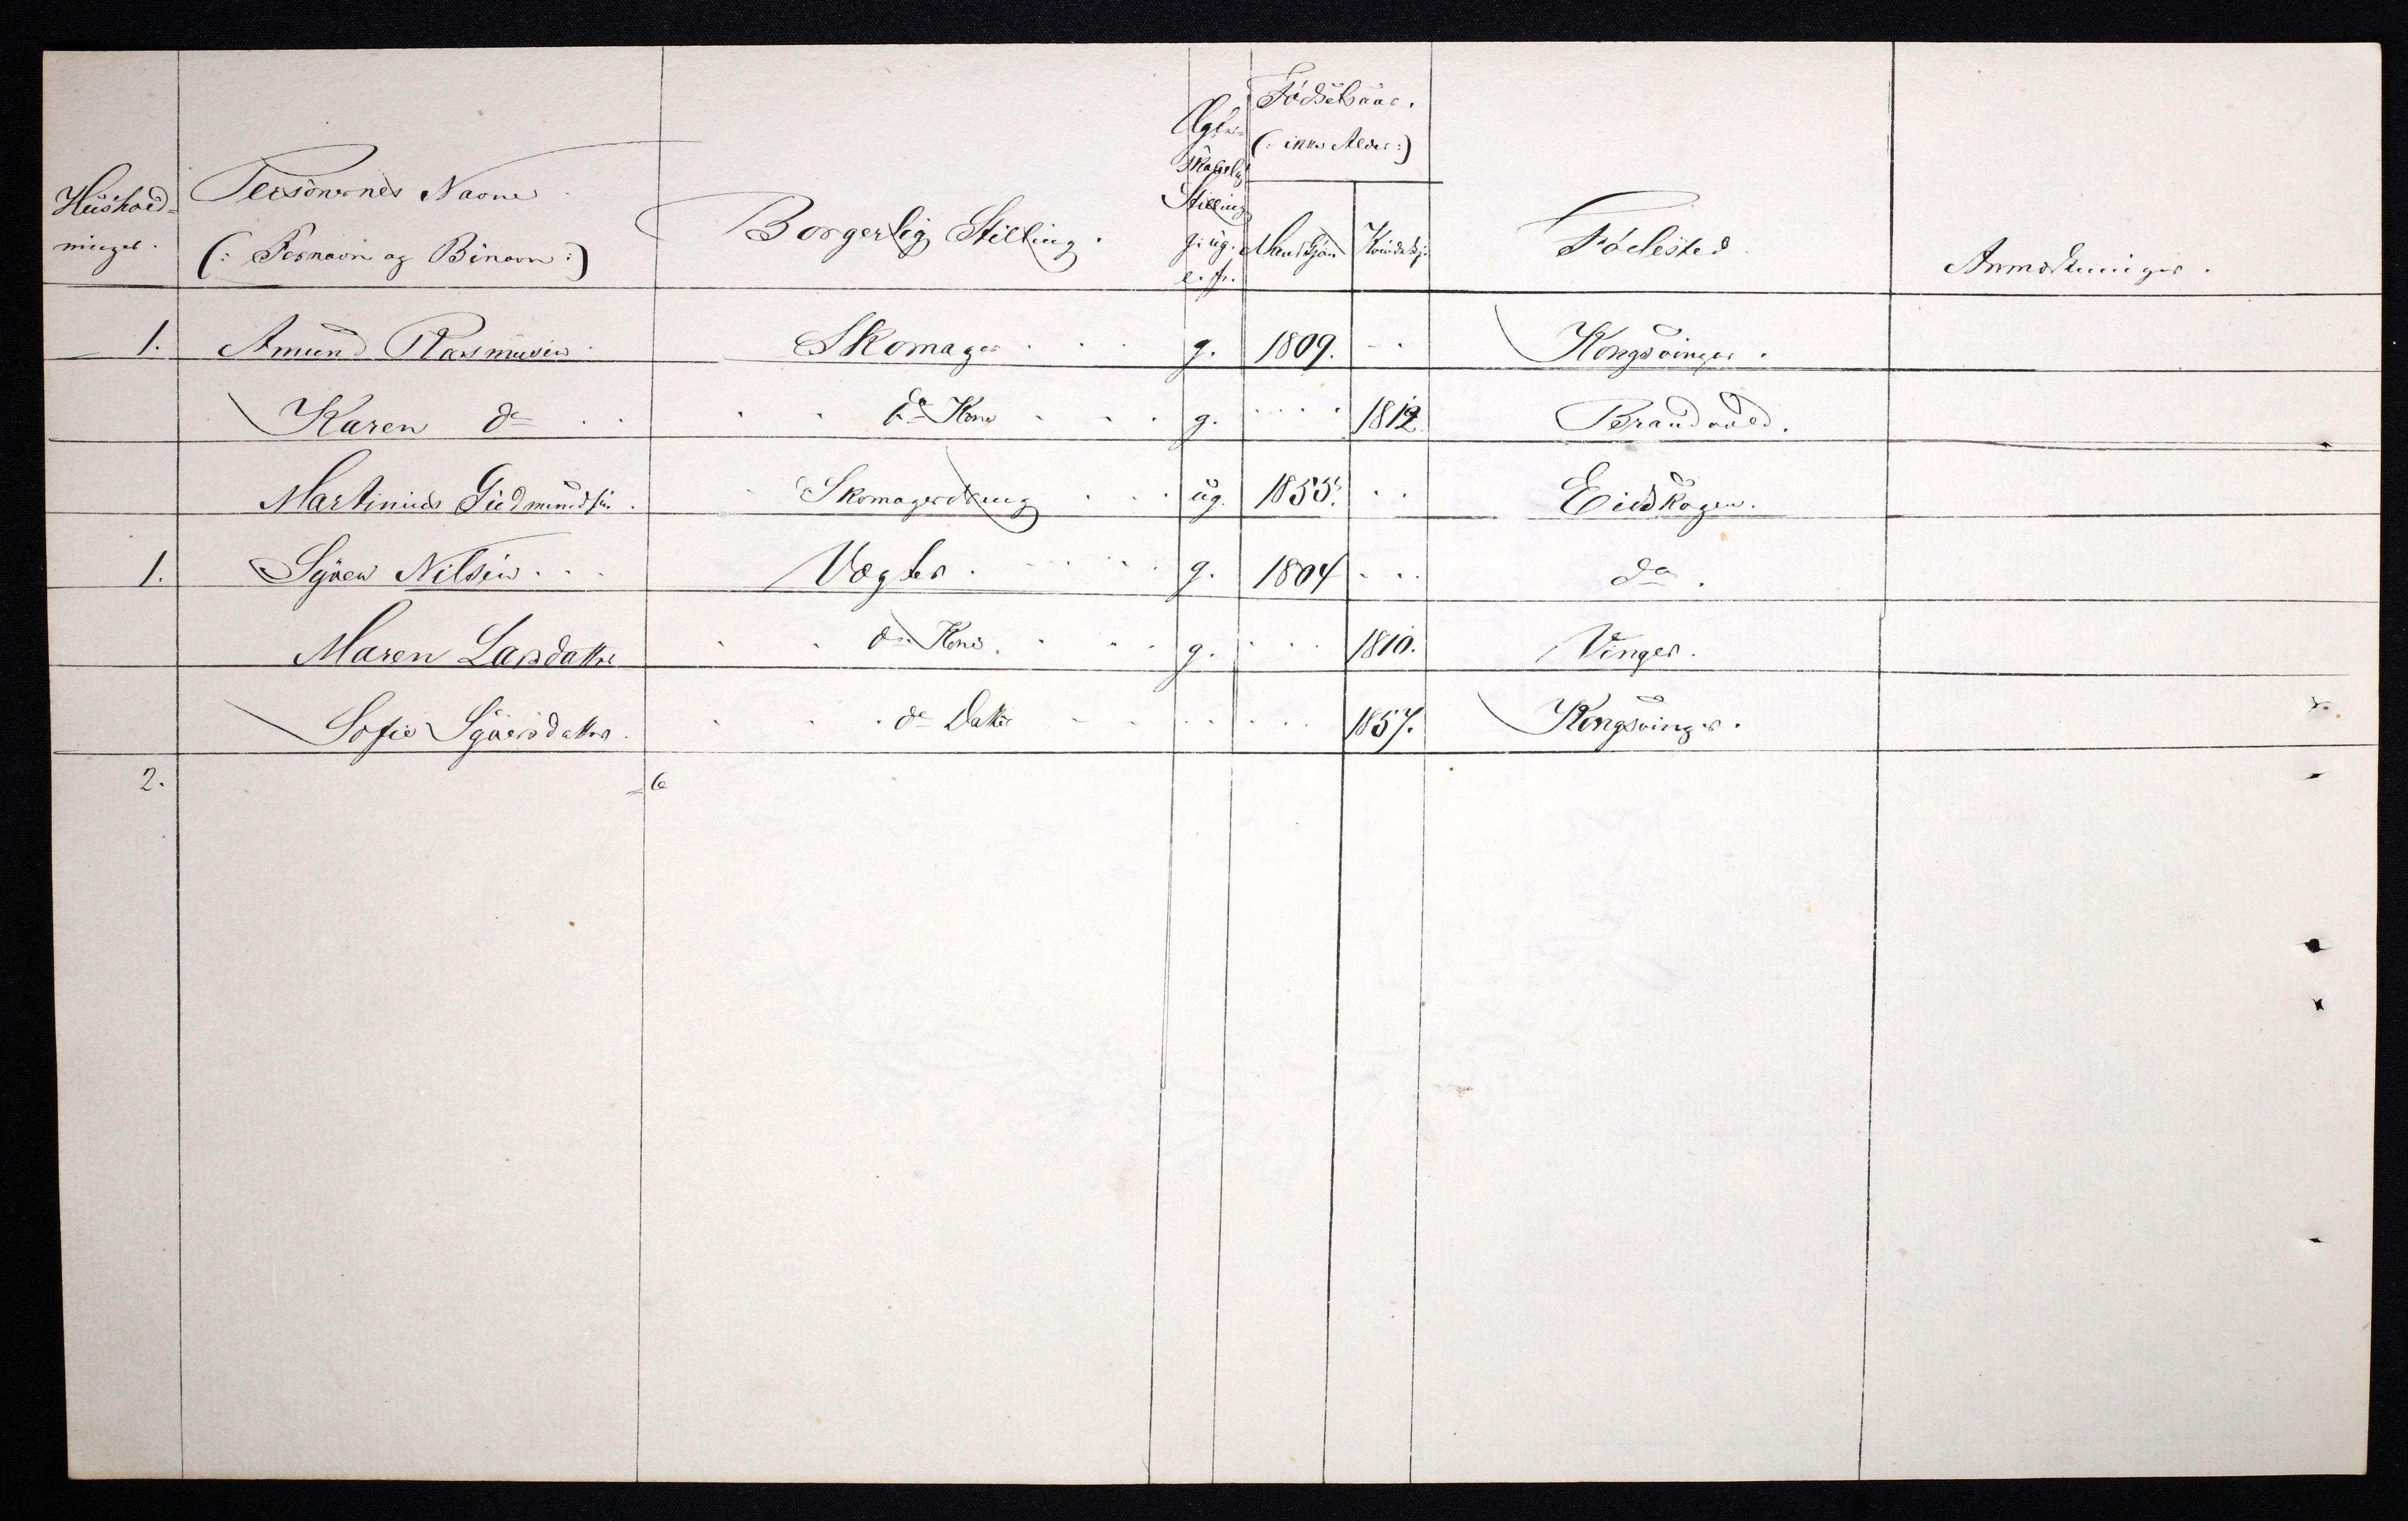 Hushold- Personernes Navne Borgerlig Stilling. Ægte- Fødselsaar. Fødested Anmærkninger.
ninger. (: Fornavn og Binavn :) skabelig (: ikke Alder :)
Stilling
g. ug. Mandkjøn Kvindekj.
e. f.
1. Amund Rasmusen Skomager . . . g. 1809. . . Kongsvinger.
Karen do . . . . do Kone . . . . g. . . . . 1812. Brandvold.
Martinius Gudmundsen. Skomagerdreng . . . ug. 1855. . . Eidskogen.
1. Syver Nilsen . . . Vægter . . . . . g. 1804 . . . do.
Maren Larsdatter . . do Kone . . . . g. . . . 1810. Vinger.
Sofie Syversdatter. . . . do Datter . . . . . . . 1857. Kongsvinger.
2. 6